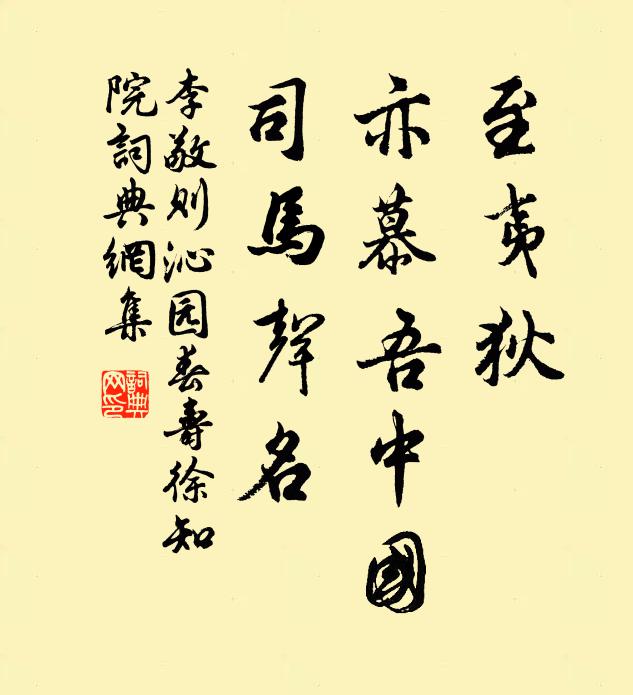 至夷狄
亦慕吾中國
司馬聲名
李敬则沁园春壽徐知
院詞典網集
詞典网印